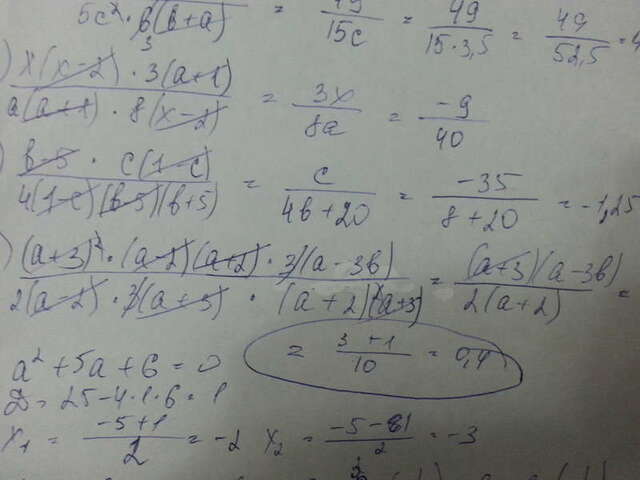 5c² · 6(b+a) = 49/15c = 49/15·3,5 = 49/52,5 = 
3
) x(x-2) · 3(a+1) / a(a+1) · 8(x-2) = 3x/8a = -9/40
) b-5 · c(1-c) / 4(1-c)(b-5)(b+5) = c/4b+20 = -35/8+20 = -1,25
) (a+3)² · (a-2)(a+2) · 3(a-3b) / 2(a-2) · 3(a+3) · (a+2)(a+3) = (a+3)(a-3b)/2(a+2) =
= 3+1/10 = 0,4
a² + 5a + 6 = 0
D = 25-4·1·6 = 1
x₁ = -5+1/2 = -2 x₂ = -5-1/2 = -3